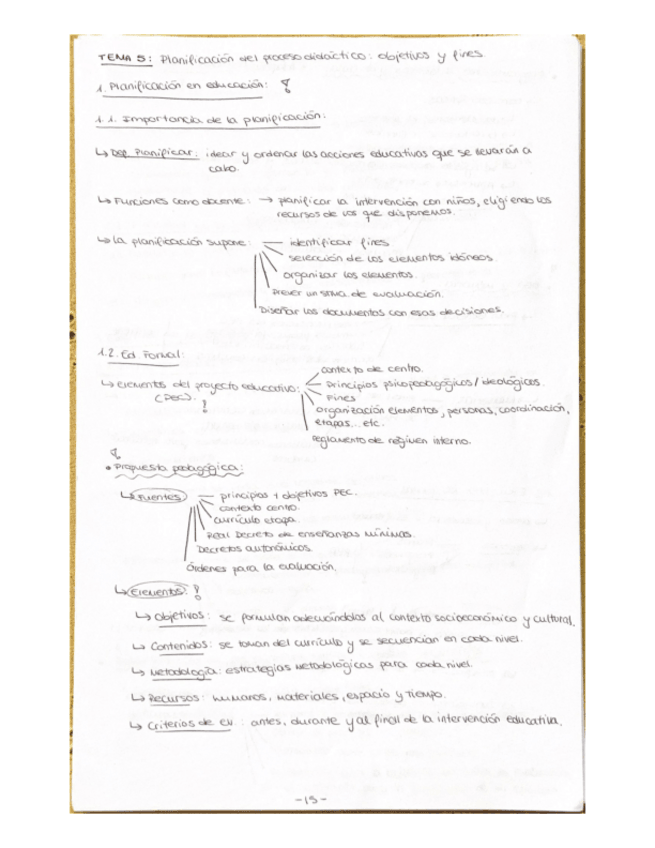 TEMA 5: Planificación del proceso didáctico: objetivos y fines
1. Planificación en educación:
1.1. Importancia de la planificación:
↳ Def. Planificar: idear y ordenar las acciones educativas que se llevarán a
cabo.
↳ Funciones como docente: → planificar la intervención con niños, eligiendo los
recursos de los que disponemos.
↳ La planificación supone: — identificar fines
selección de los elementos idóneos.
organizar los elementos.
Prever un stma de evaluación.
Diseñar los documentos con esas decisiones.
1.2. Ed. Formal:
↳ Elementos del proyecto educativo:
(PEC).
contexto de centro.
Principios psicopedagógicos / ideológicos.
Fines
organización elementos, personas, coordinación,
etapas... etc.
reglamento de régimen interno.
• Propuesta pedagógica:
↳ Fuentes — principios + objetivos PEC.
contexto centro.
currículo etapa
Real Decreto de enseñanzas mínimas.
Decretos autonómicos.
Órdenes para la evaluación.
↳ Elementos: !
↳ Objetivos: se formulan adecuándolos al contexto socioeconómico y cultural.
↳ Contenidos: se toman del currículo y se secuencian en cada nivel.
↳ Metodología: estrategias metodológicas para cada nivel.
↳ Recursos: humanos, materiales, espacio y tiempo.
↳ Criterios de ev.: antes, durante y al final de la intervención educativa.
-15-